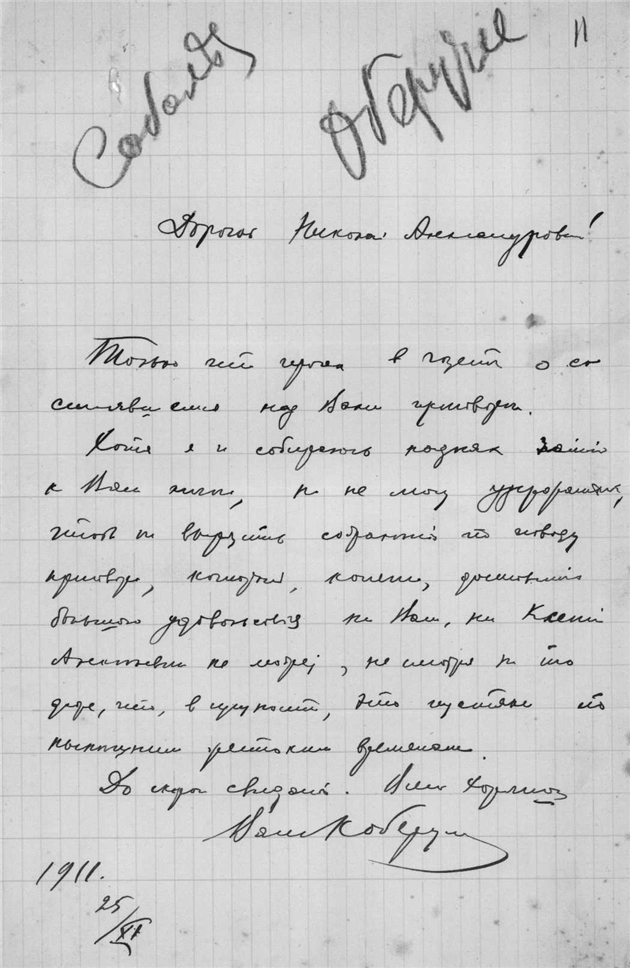 11
Оберучев
Дорогой Николай Александрович!
Только что прочел в газете о со
стоявшемся над Вами приговоре.
Хотя я и собираюсь на днях
к Вам лично, но не могу удержаться,
чтоб не выразить по поводу
приговора, который, конечно, доставить
большого удовольствия ни Вам, ни Ксении
не может, не смотря на то
даже, что, в сущности, это пустяки по
нынешним жестоким временам.
До скорого свидания. Хорошего
Ваш К Оберучев
1911.
25/XI